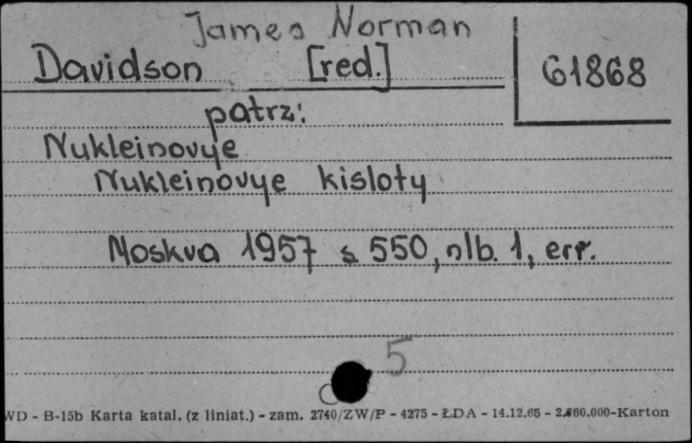 James Norman
Davidson [red.]
61868
patrz:
Nukleinovye
Nukleinovye kisloty
Moskva 1957 s 550, nlb. 1, err.
5
WD - B-15b Karta katal. (z liniat.) - zam. 2740/ZW/P - 4275 - ŁDA - 14.12.65 - 2.860.000-Karton